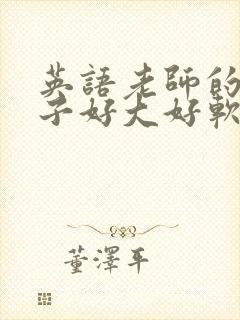 英語老師的
子好大好軟
董澤平